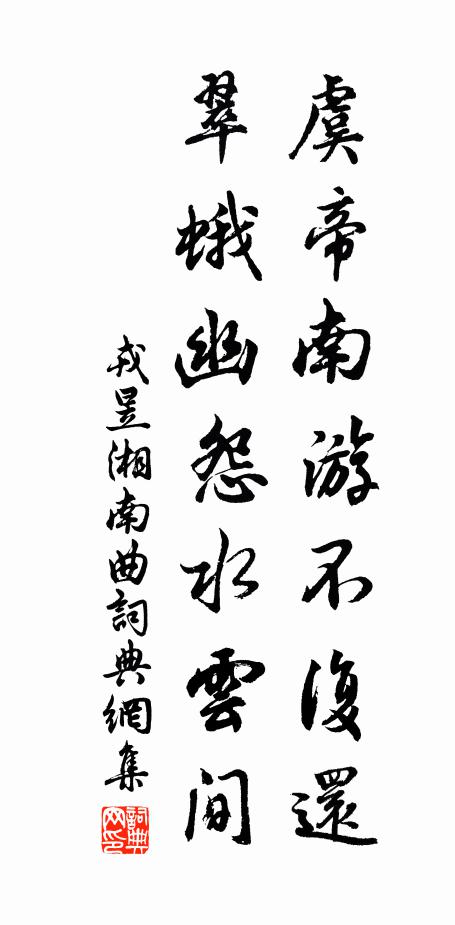 虞帝南游不復還
翠蛾幽怨水雲间
戎昱湘南曲詞典網集
詞典网印